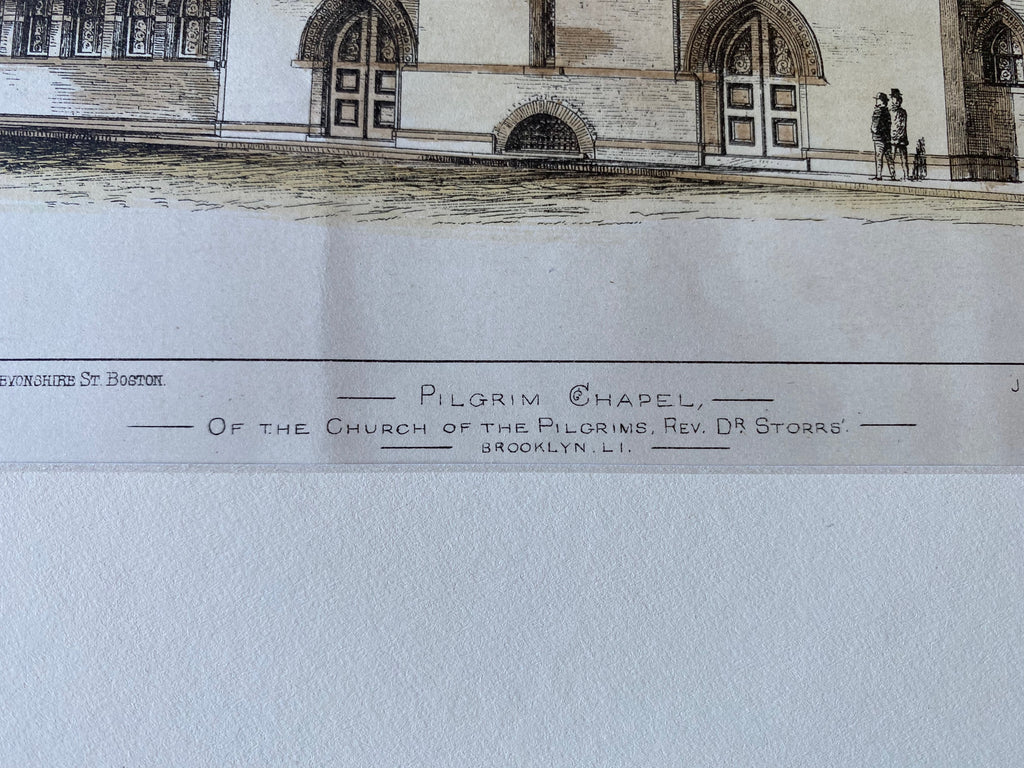 EVONSHIRE ST. BOSTON.
J
PILGRIM CHAPEL,
OF THE CHURCH OF THE PILGRIMS, REV. DR STORRS'.
BROOKLYN. L I.